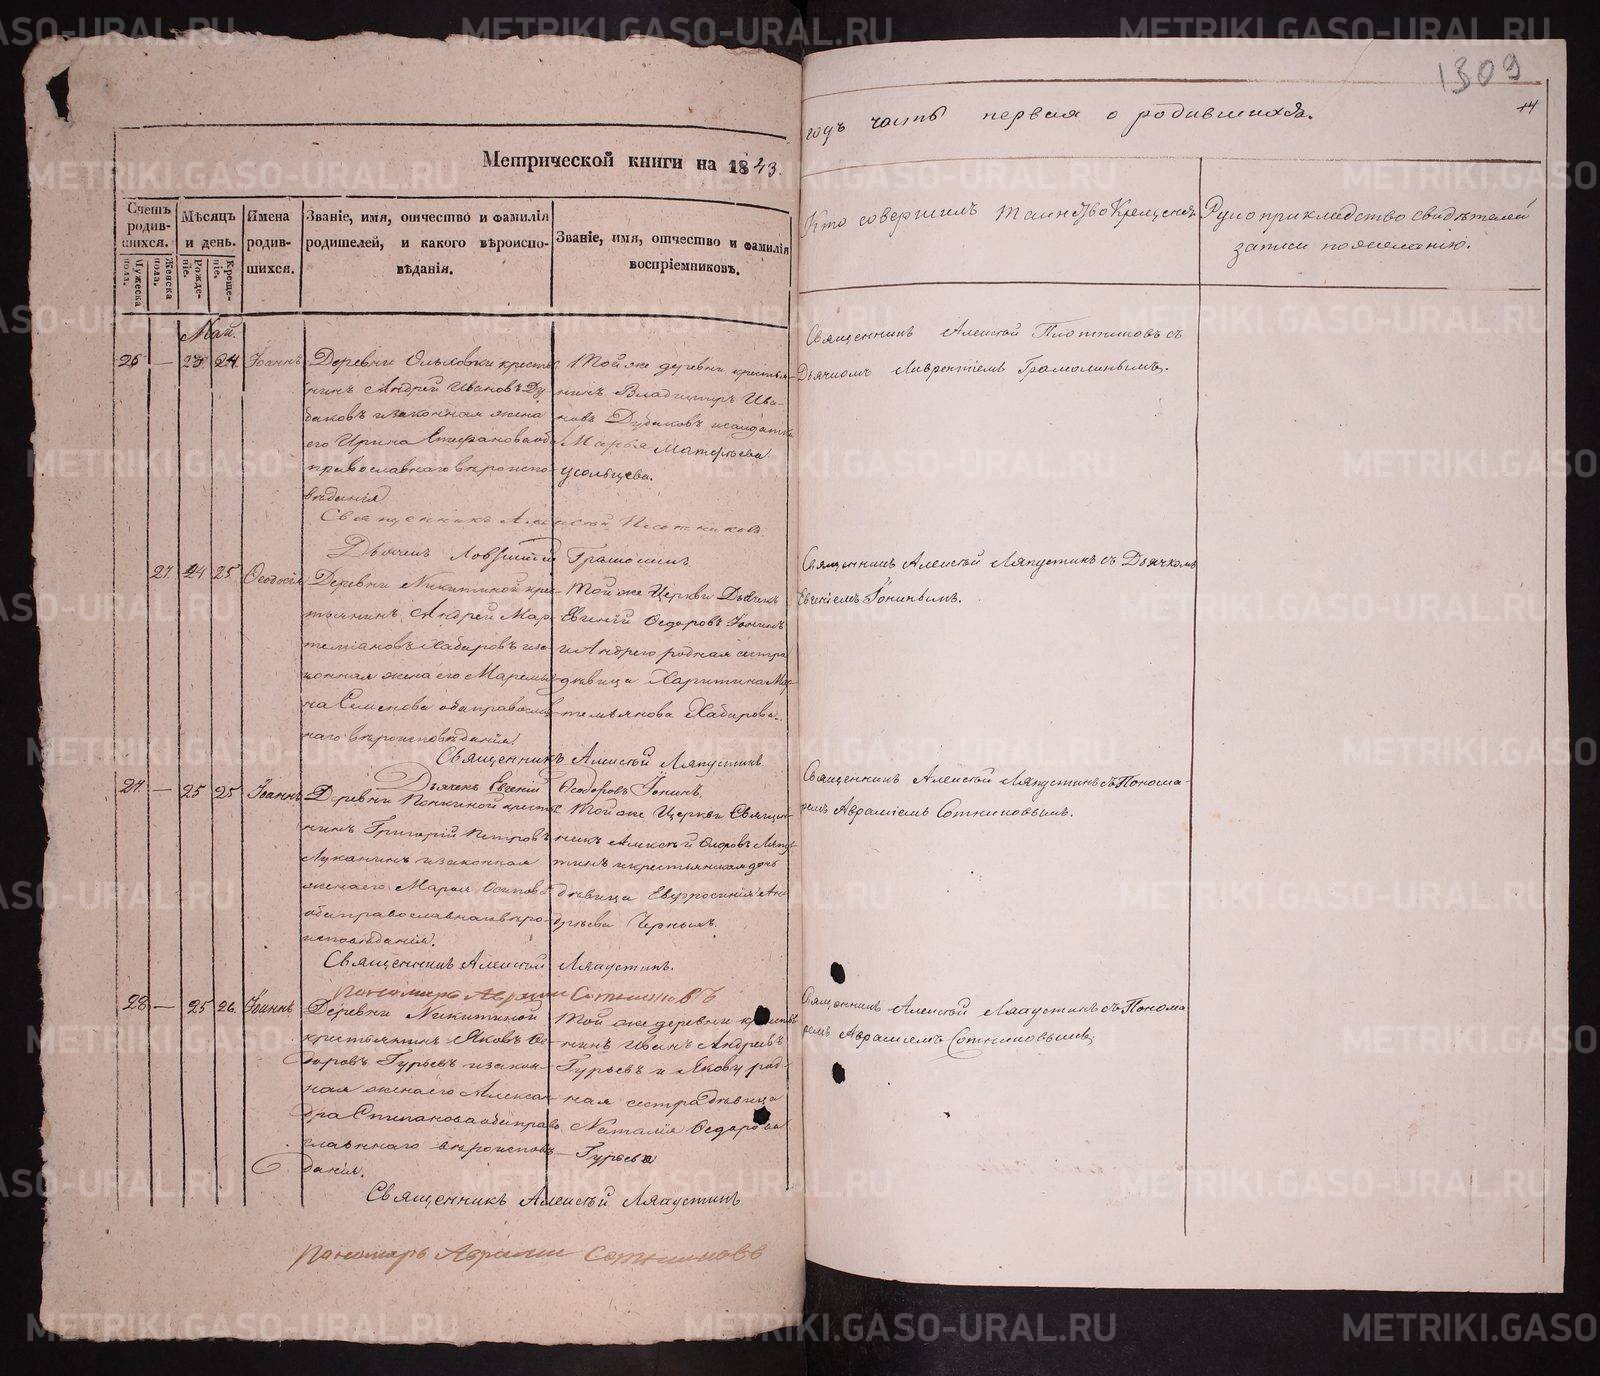 1309
14
Метрической книги на 1843.
годъ часть первая о родившихся.
Счетъ родив-шихся.
Мужеска пола.
Женска пола.
Мѣсяцъ и день.
Рожде-ніе.
Креще-ніе.
Имена родив-шихся.
Званіе, имя, отчество и фамилія
родителей, и какого вѣроиспо-
вѣданія.
Званіе, имя, отчество и фамилія
воспріемниковъ.
Кто совершилъ таинство Крещенія
Рукоприкладство свидѣтелей
записи по желанію.
Май.
26 — 23 24 Іоаннъ
Деревни Ольховки кресть-
янинъ Андрей Ивановъ Ду-
баковъ и законная жена
его Ирина Стефанова оба
православнаго вѣроиспо-
вѣданія
Той же деревни крестья-
нинъ Владимиръ Ива-
новъ Дубаковъ и солдатка
Марья Матвѣева
Усольцева.
Священникъ Алексѣй Плотниковъ съ
Дьячкомъ Лаврентіемъ Грамолинымъ.
Священникъ Алексѣй Плотниковъ
Дьячекъ Грамолинъ
27. 24 25 Ѳеодосія
Деревни Никитиной крес-
тьянинъ Андрей Мар-
теміановъ Хабаровъ и за-
конная жена его Маремья-
на Семенова оба православ-
наго вѣроисповѣданія.
Той же Церкви Дьячекъ
Евгеній Ѳедоровъ Іонинъ
и Андрею родная сестра
дѣвица Харитина Мар-
темьянова Хабарова.
Священникъ Алексѣй Ляпустинъ съ Дьячкомъ
Евгеніемъ Іонинымъ.
Священникъ Алексѣй Ляпустинъ
Дьячекъ Евгеній Ѳеодоровъ Іонинъ.
27. — 25 25 Іоаннъ
Деревни Понкиной кресть-
нинъ Григорій Петровъ
Луканинъ и законная
жена его Марья Осипова
оба православнаго вѣро-
исповѣданія.
Той же Церкви Священ-
никъ Алексѣй Ѳедоровъ Ляпус-
тинъ и крестьянская дочь
дѣвица Евфросинія Анд-
рѣева Черныхъ.
Священникъ Алексѣй Ляпустинъ съ Понома-
ремъ Авраміемъ Сотниковымъ.
Священникъ Алексѣй Ляпустинъ.
Пономарь Аврамій Сотниковъ
28. — 25 26. Іоаннъ
Деревни Никитиной
крестьянинъ Яковъ Ѳе-
доровъ Гурьевъ и закон-
ная жена его Алексан-
дра Степанова оба право-
славнаго вѣроисповѣ-
данія.
Той же деревни крестья-
нинъ Иванъ Андреевъ
Гурьевъ и Якову род-
ная сестра дѣвица
Наталія Ѳедорова
Гурьева
Священникъ Алексѣй Ляпустинъ съ Понома
ремъ Авраміемъ Сотниковымъ.
Священникъ Алексѣй Ляпустинъ
Пономарь Аврамій Сотниковъ
METRIKI.GASO-URAL.RU